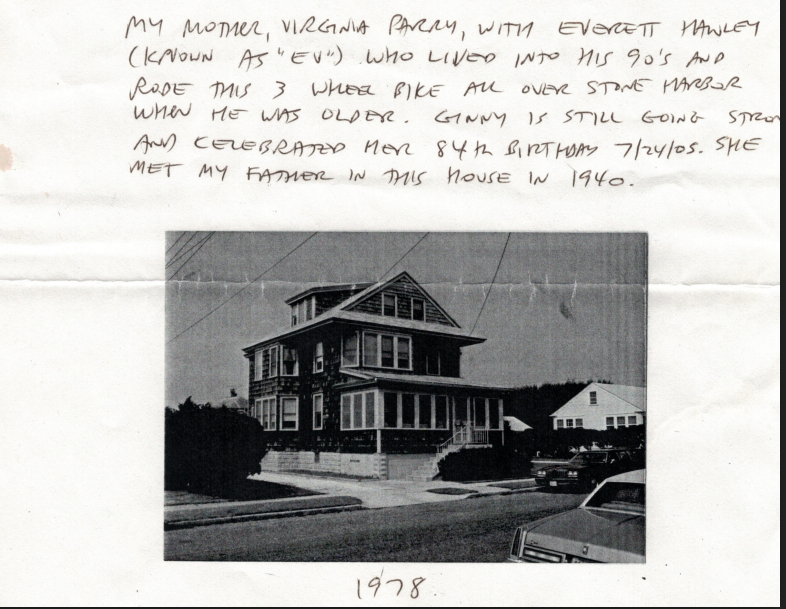 MY MOTHER, VIRGINIA PARRY, WITH EVERETT HAWLEY
(KNOWN AS "EV") WHO LIVED INTO HIS 90'S AND
RODE THIS 3 WHEEL BIKE ALL OVER STONE HARBOR
WHEN HE WAS OLDER. GINNY IS STILL GOING STRON
AND CELEBRATED HER 84th BIRTHDAY 7/24/05. SHE
MET MY FATHER IN THIS HOUSE IN 1940.
1978